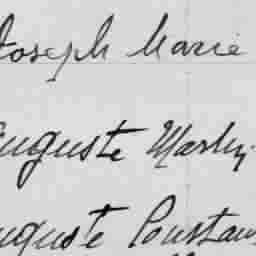 Joseph Marie
Auguste
Auguste Constan